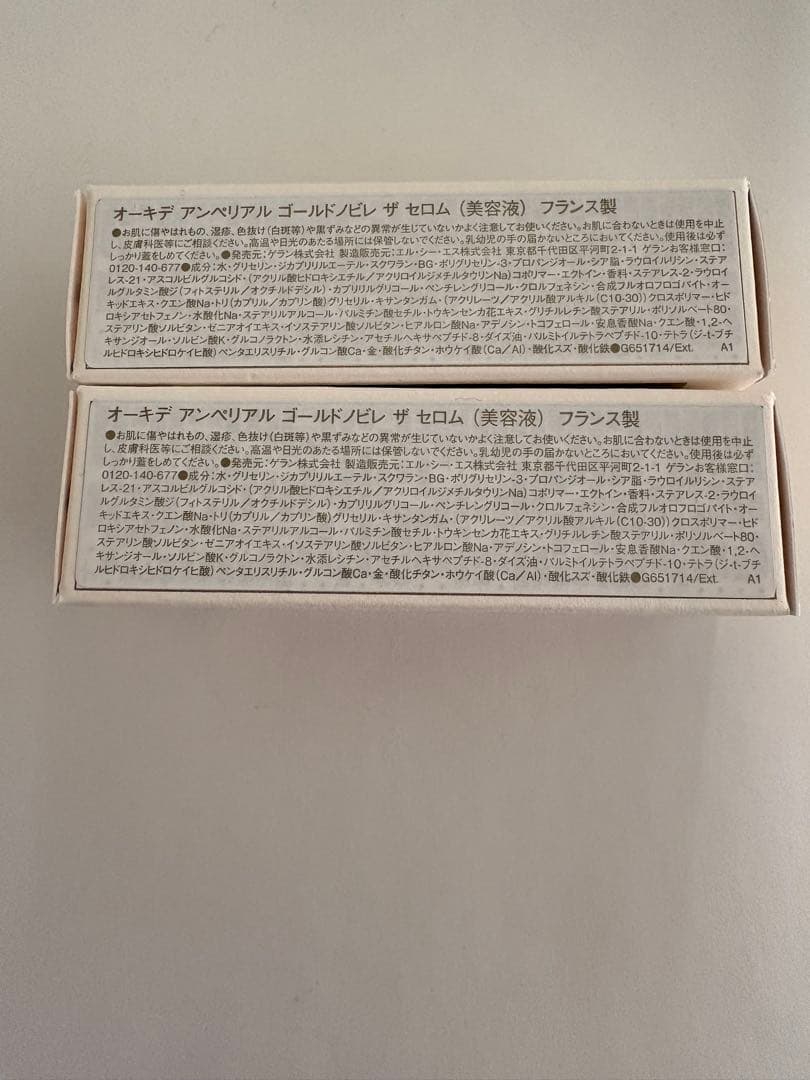 オーキデ アンペリアル ゴールドノビレ ザ セロム（美容液） フランス製
●お肌に傷やはれもの、湿疹、色抜け(白斑等)や黒ずみなどの異常が生じていないかよく注意してお使いください。お肌に合わないときは使用を中止
し、皮膚科医等にご相談ください。高温や日光のあたる場所には保管しないでください。乳幼児の手の届かないところにおいてください。使用後は必ず
しっかり蓋をしめてください。●発売元：ゲラン株式会社 製造販売元：エル・シー・エス株式会社 東京都千代田区平河町2-1-1 ゲランお客様窓口：
0120-140-677●成分：水・グリセリン・ジカプリリルエーテル・スクワラン・BG・ポリグリセリン-3・プロパンジオール・シア脂・ラウロイルリシン・ステア
レス-21・アスコルビルグルコシド・(アクリル酸ヒドロキシエチル／アクリロイルジメチルタウリンNa)コポリマー・エクトイン・香料・ステアレス-2・ラウロイ
ルグルタミン酸ジ(フィトステリル／オクチルドデシル)・カプリリルグリコール・ペンチレングリコール・クロルフェネシン・合成フルオロフロゴパイト・オー
キッドエキス・クエン酸Na・トリ(カプリル／カプリン酸)グリセリル・キサンタンガム・(アクリレーツ／アクリル酸アルキル(C10-30))クロスポリマー・ヒド
ロキシアセトフェノン・水酸化Na・ステアリルアルコール・パルミチン酸セチル・トウキンセンカ花エキス・グリチルレチン酸ステアリル・ポリソルベート80・
ステアリン酸ソルビタン・ゼニアオイエキス・イソステアリン酸ソルビタン・ヒアルロン酸Na・アデノシン・トコフェロール・安息香酸Na・クエン酸・1,2-ヘ
キサンジオール・ソルビン酸K・グルコノラクトン・水添レシチン・アセチルヘキサペプチド-8・ダイズ油・パルミトイルテトラペプチド-10・テトラ(ジ-t-ブチ
ルヒドロキシヒドロケイヒ酸)ペンタエリスリチル・グルコン酸Ca・金・酸化チタン・ホウケイ酸(Ca／Al)・酸化スズ・酸化鉄●G651714/Ext. A1
オーキデ アンペリアル ゴールドノビレ ザ セロム（美容液） フランス製
●お肌に傷やはれもの、湿疹、色抜け(白斑等)や黒ずみなどの異常が生じていないかよく注意してお使いください。お肌に合わないときは使用を中止
し、皮膚科医等にご相談ください。高温や日光のあたる場所には保管しないでください。乳幼児の手の届かないところにおいてください。使用後は必ず
しっかり蓋をしめてください。●発売元：ゲラン株式会社 製造販売元：エル・シー・エス株式会社 東京都千代田区平河町2-1-1 ゲランお客様窓口：
0120-140-677●成分：水・グリセリン・ジカプリリルエーテル・スクワラン・BG・ポリグリセリン-3・プロパンジオール・シア脂・ラウロイルリシン・ステア
レス-21・アスコルビルグルコシド・(アクリル酸ヒドロキシエチル／アクリロイルジメチルタウリンNa)コポリマー・エクトイン・香料・ステアレス-2・ラウロイ
ルグルタミン酸ジ(フィトステリル／オクチルドデシル)・カプリリルグリコール・ペンチレングリコール・クロルフェネシン・合成フルオロフロゴパイト・オー
キッドエキス・クエン酸Na・トリ(カプリル／カプリン酸)グリセリル・キサンタンガム・(アクリレーツ／アクリル酸アルキル(C10-30))クロスポリマー・ヒド
ロキシアセトフェノン・水酸化Na・ステアリルアルコール・パルミチン酸セチル・トウキンセンカ花エキス・グリチルレチン酸ステアリル・ポリソルベート80・
ステアリン酸ソルビタン・ゼニアオイエキス・イソステアリン酸ソルビタン・ヒアルロン酸Na・アデノシン・トコフェロール・安息香酸Na・クエン酸・1,2-ヘ
キサンジオール・ソルビン酸K・グルコノラクトン・水添レシチン・アセチルヘキサペプチド-8・ダイズ油・パルミトイルテトラペプチド-10・テトラ(ジ-t-ブチ
ルヒドロキシヒドロケイヒ酸)ペンタエリスリチル・グルコン酸Ca・金・酸化チタン・ホウケイ酸(Ca／Al)・酸化スズ・酸化鉄●G651714/Ext. A1